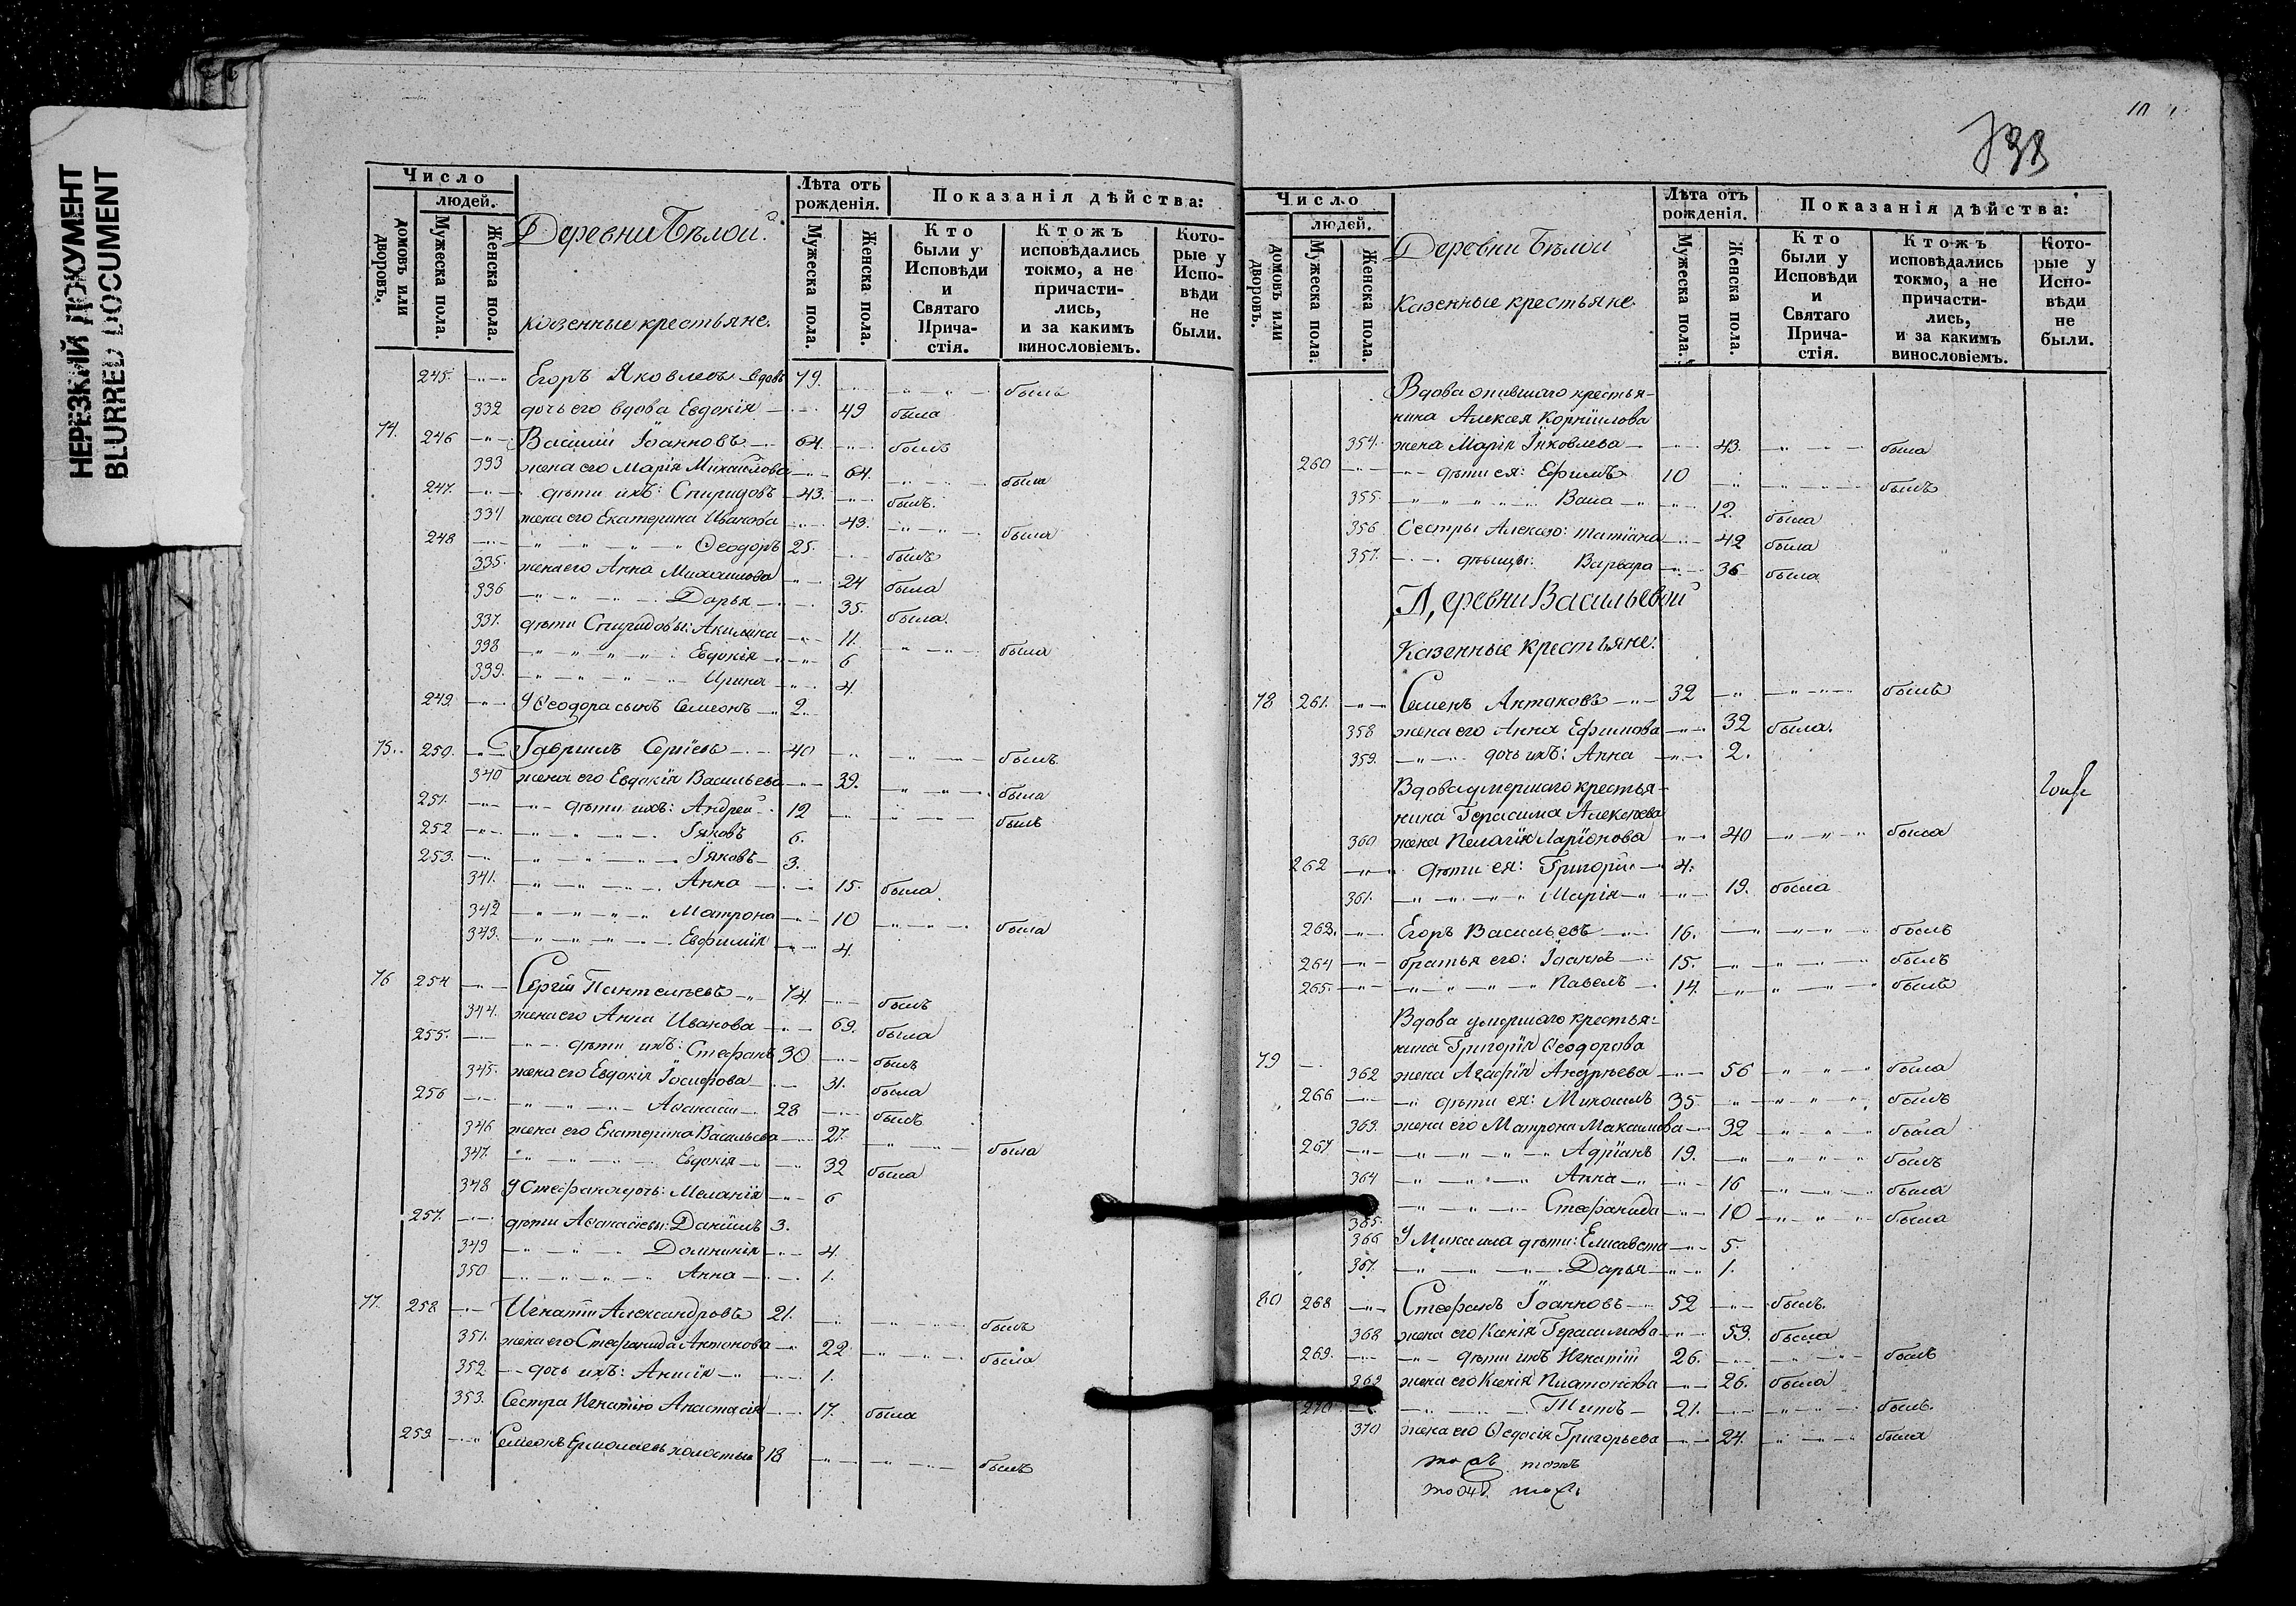 НЕРЕЗКИЙ ДОКУМЕНТ
BLURRED DOCUMENT
Число
людей.
домовъ или дворовъ.
Мужеска пола.
Женска пола.
Деревни Бѣлой.
казенные крестьяне.
Лѣта отъ рожденія.
Мужеска пола.
Женска пола.
Показанія дѣйства:
Кто были у Исповѣди и Святаго Прича-стія.
Ктожъ исповѣдались токмо, а не причасти-лись, и за какимъ винословіемъ.
Кото-рые у Испо-вѣди не были.
245. Егоръ Яковлевъ вдовъ 79. былъ
332 дочь его вдова Евдокія 49 была
74. 246 Василій Іоанновъ 64. былъ
333 жена его Марія Михайлова 64. была
247. дѣти ихъ: Спиридонъ 43. былъ.
334 жена его Екатерина Иванова 43. была
248 Ѳеодоръ 25. былъ
335. жена его Анна Михаилова 24 была
336 Дарья 35. была.
337. дѣти Спиридовы: Акилина 11. была
338 Евдокія 6
339. Ирина 4.
249 У Ѳеодора сынъ Симеонъ 2.
75. 250. Гавриилъ Сергіевъ 40 былъ
340 жена его Евдокія Васильева 39. была
251. дѣти ихъ: Андрей 12 былъ
252 Іаковъ 6.
253. Іяковъ 3.
341. Анна 15. была
342 Матрона 10 была
343. Евфимія 4.
76 254 Сергій Пантелѣевъ 74. былъ
344. жена его Анна Иванова 69. была
255. дѣти ихъ: Стефанъ 30 былъ
345. жена его Евдокія Іосифова 31. была
256 Аѳанасій 28 былъ
346 жена его Екатерина Васильева 27. была
347. Евдокія 32 была
348 У Стефана дочь: Меланія 6
257. дѣти Аѳанасіевы: Даніилъ 3.
349 Домникія 4.
350 Анна 1.
77. 258 Игнатій Александровъ 21. былъ
351. жена его Стефанида Антонова 22 была
352 дочь ихъ: Анисія 1.
353. Сестра Игнатію Анастасія 17. была
259 Семеонъ Ермолаевъ холостый 18 былъ
Число
людей.
домовъ или дворовъ.
Мужеска пола.
Женска пола.
Деревни Бѣлой
Казенные крестьяне.
Лѣта отъ рожденія.
Мужеска пола.
Женска пола.
Показанія дѣйства:
Кто были у Исповѣди и Святаго Прича-стія.
Ктожъ исповѣдались токмо, а не причасти-лись, и за какимъ винословіемъ.
Кото-рые у Испо-вѣди не были.
Вдова крестья-
нина Алексея Корнилова
354. жена Марія Іяковлева 43. была
260 дѣти ея: Ефимъ 10 былъ
355. Васа 12. была
356 Сестры Алексею: Татіана 42 была
357. дѣвицы: Варвара 36 была
Деревни Васильевой
Казенные крестьяне.
78 261. Семенъ Антоновъ 32 былъ
358 жена его Анна Ефимова 32 была.
359. дочь ихъ: Анна 2.
Вдова умершаго крестья-
нина Герасима Алексѣева
360 жена Пелагія Ларіонова 40 была
262 дѣти ея: Григорій 4.
361. Марія 19. была
263. Егоръ Васильевъ 16. былъ
264 братья его: Іоаннъ 15. былъ
265. Павелъ 14. былъ
Вдова умершаго крестья-
нина Григорія Ѳеодорова
79 362 жена Агафія Андрѣева 56 была
266 дѣти ея: Михаилъ 35 былъ
363. жена его Матрона Максимова 32 была
267 Адріанъ 19. былъ
364 Анна 16 была
365. Стефанида 10 была
366 У Михаила дѣти: Елисавета 5.
367. Дарья 1.
80 268 Стефанъ Іоанновъ 52 былъ.
368 жена его Ксенія Герасимова 53. была
269. дѣти ихъ Игнатій 26. былъ
жена его Ксенія Платонова 26. была
270 Титъ 21. былъ.
370 жена его Ѳедосія Григорьева 24. была